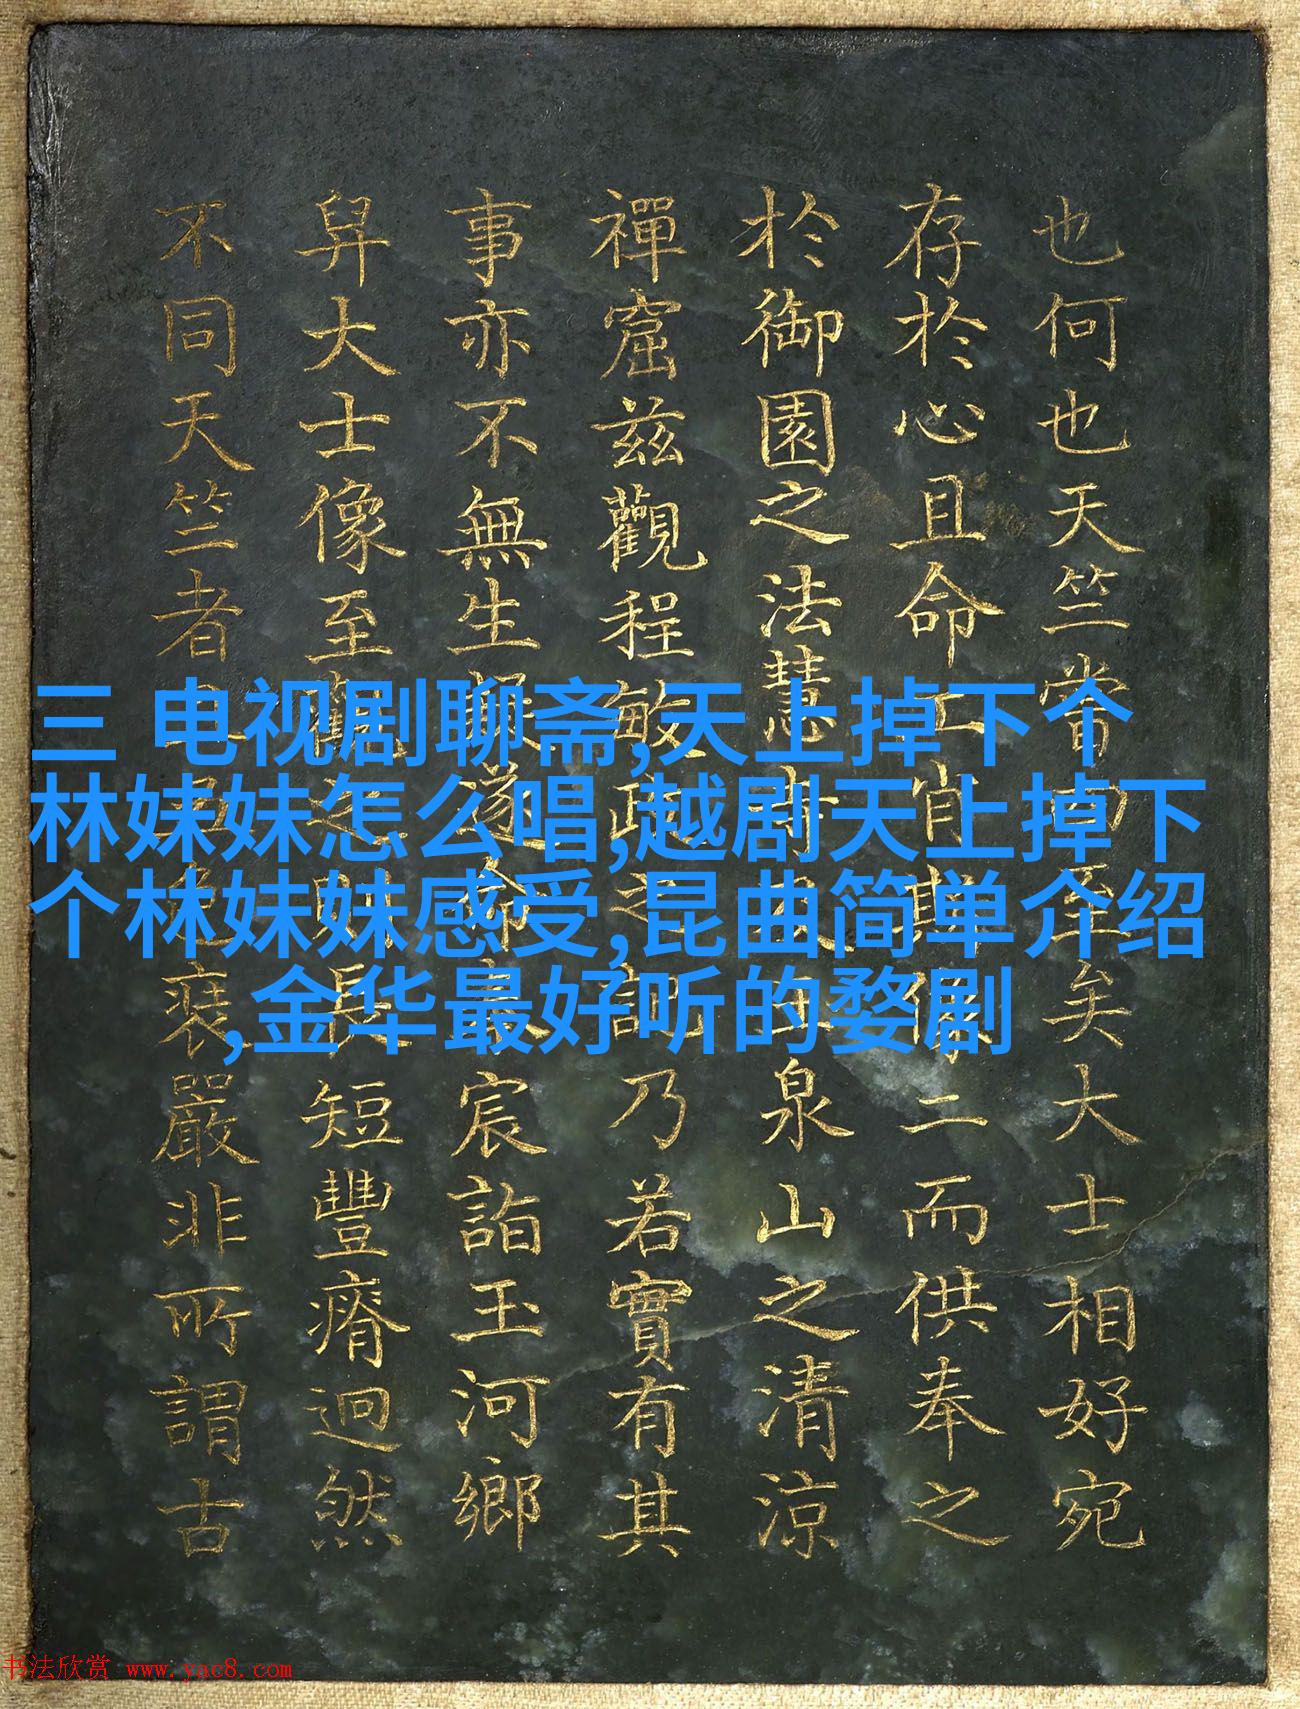 也何也天竺當至矣大士相好宛
存於心且命工肖像二而供奉之
於御園之法慧寺及玉泉山之清涼
禪窟茲觀程敏政之記乃若實有其
事亦不無生遂命宸詣玉河鄉
舁大士像至觀之則長短豐瘠迥然
不同天竺者嚴非所謂古
三 电视剧聊斋,天上掉下个
林妹妹怎么唱,越剧天上掉下
个林妹妹感受,昆曲简单介绍
,金华最好听的婺剧
书法欣赏 www.yac8.com